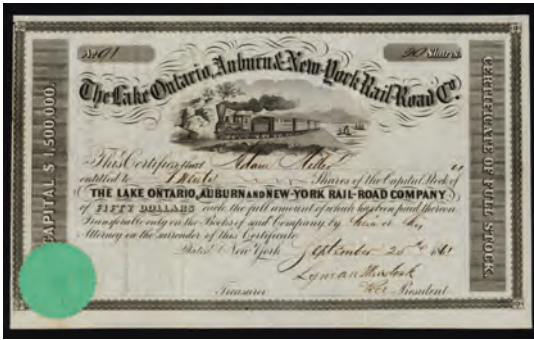 No 91
20 Shares
The Lake Ontario, Auburn & New-York Rail-Road Co.
CAPITAL $ 1,500,000.
CERTIFICATE OF FULL STOCK
This Certifies that Adam Miller is
entitled to Shares of the Capital Stock of
THE LAKE ONTARIO, AUBURN AND NEW-YORK RAIL-ROAD COMPANY
of FIFTY DOLLARS each, the full amount of which has been paid thereon
Transferable only on the Books of said Company by or
Attorney on the surrender of this Certificate.
Dated New York September 25th 1861
Lyman
Treasurer President